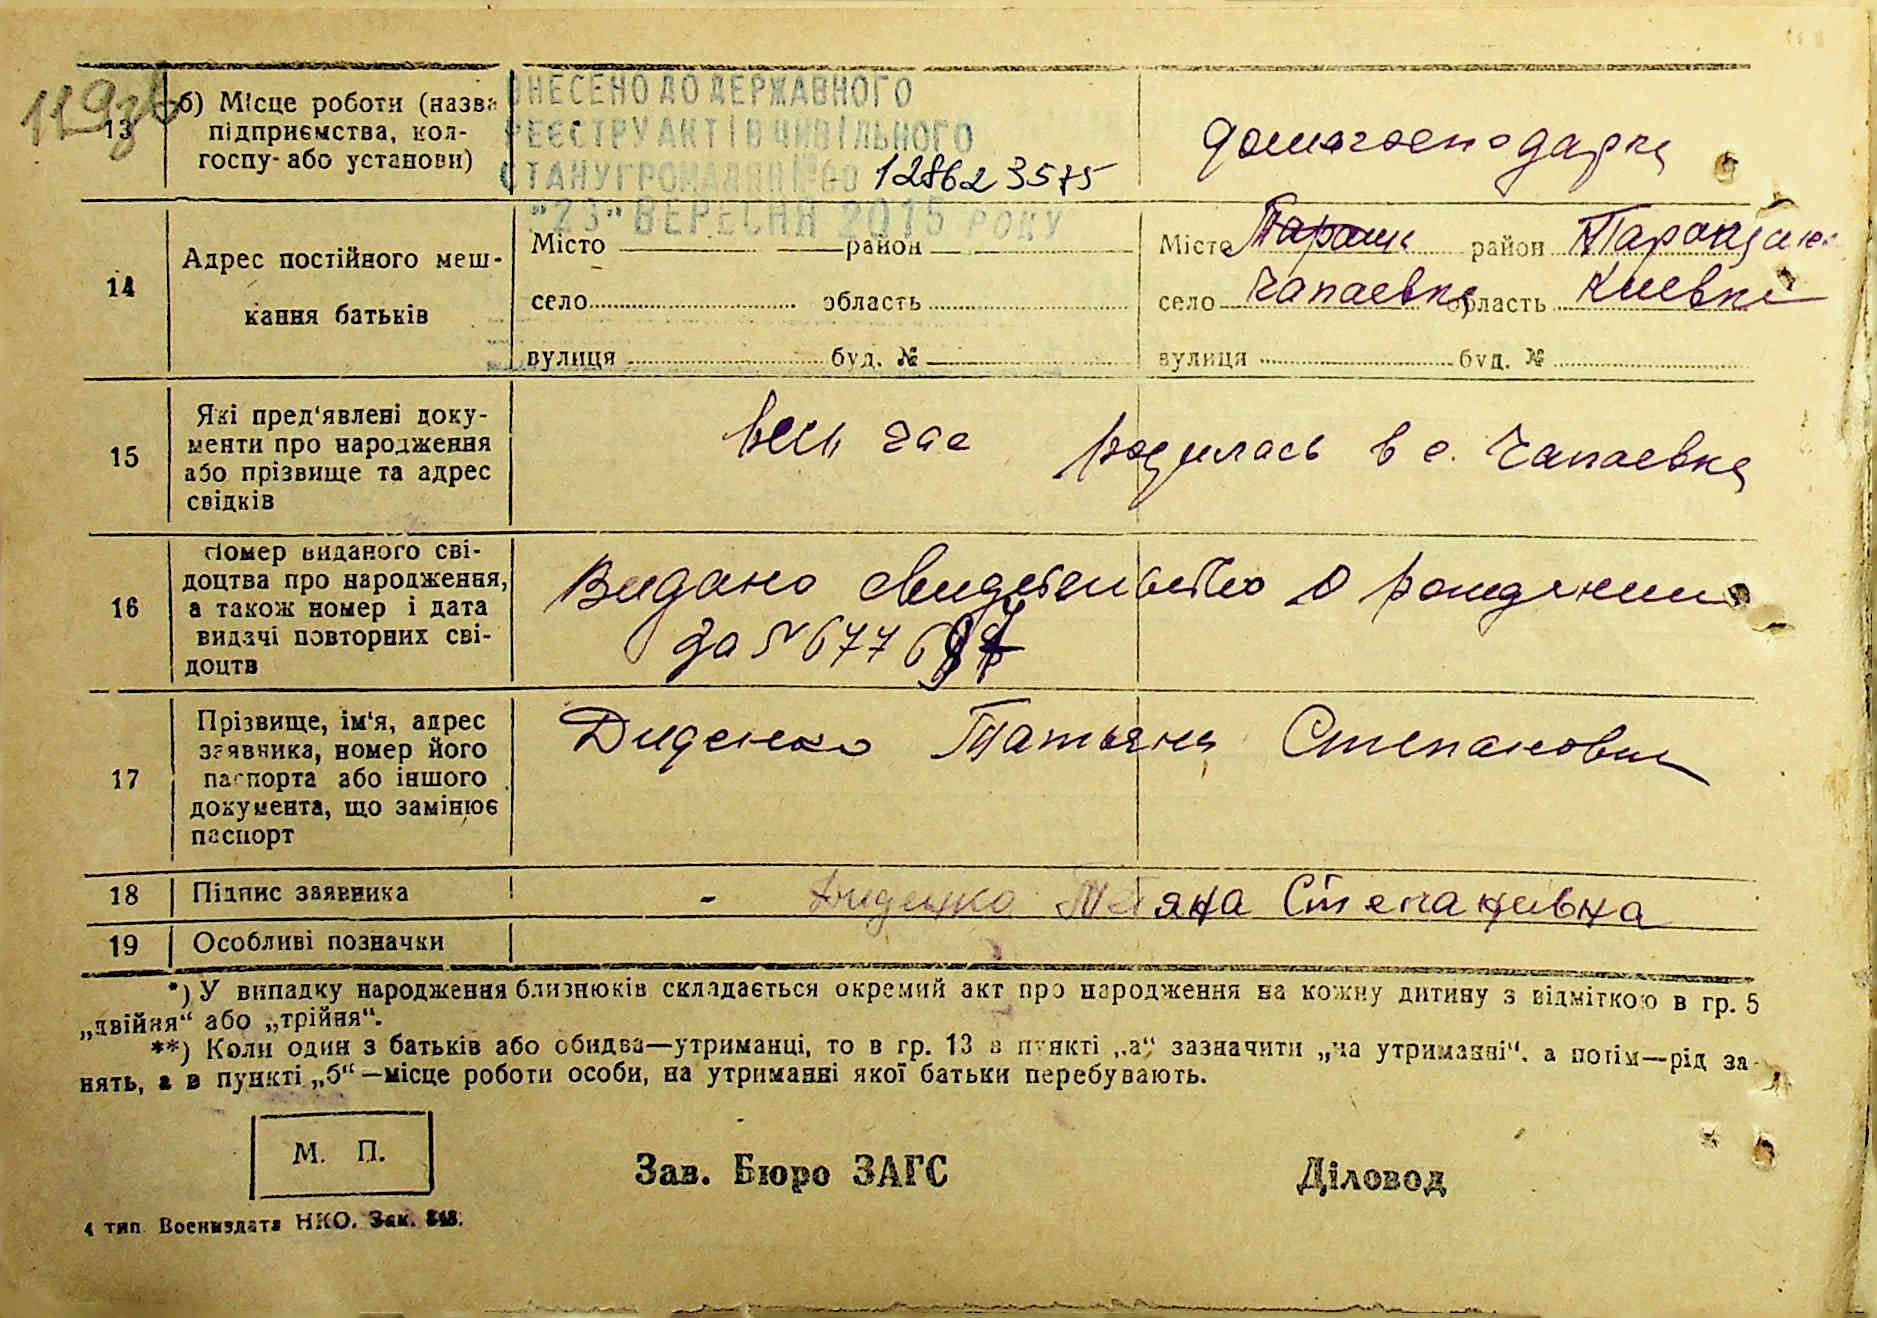 119зв
13
б) Місце роботи (назва
підприємства, кол-
госпу- або установи)
ВНЕСЕНО ДО ДЕРЖАВНОГО
РЕЄСТРУ АКТІВ ЦИВІЛЬНОГО
СТАНУ ГРОМАДЯН № 00 128623575
"23" ВЕРЕСНЯ 2015 РОКУ
домогосподарка
14
Адрес постійного меш-
кання батьків
Місто район
село область
вулиця буд. №
Місто район
село Чапаевка область Киевск
вулиця буд. №
15
Які пред'явлені доку-
менти про народження
або прізвище та адрес
свідків
весь час родилась в с. Чапаевка
16
Номер виданого сві-
доцтва про народження,
а також номер і дата
видачі повторних сві-
доцтв
Видано свидетельство о рождении
за № 677
17
Прізвище, ім'я, адрес
заявника, номер його
паспорта або іншого
документа, що замінює
паспорт
Диденко Татьяна Степановна
18
Підпис заявника
- Диденко Тетяна Степанивна
19
Особливі позначки
*) У випадку народження близнюків складається окремий акт про народження на кожну дитину з відміткою в гр. 5
„двійня“ або „трійня“.
**) Коли один з батьків або обидва—утриманці, то в гр. 13 в пункті „а“ зазначити „на утриманні“, а потім—рід за-
нять, а в пункті „б“—місце роботи особи, на утриманні якої батьки перебувають.
М. П.
Зав. Бюро ЗАГС
Діловод
4 тип. Воениздата НКО. Зак. 848.